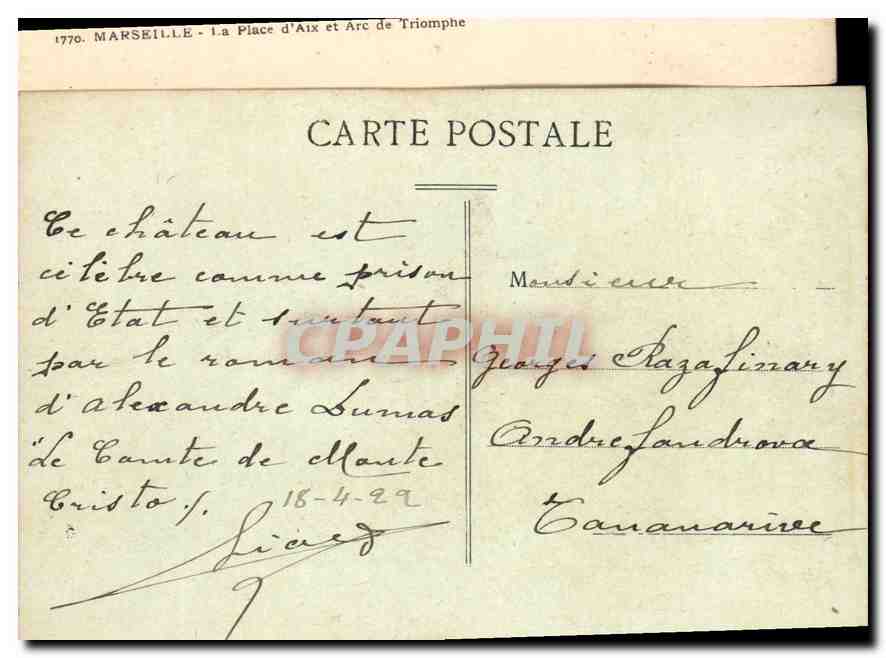 1770. MARSEILLE - La Place d'Aix et Arc de Triomphe
CARTE POSTALE
Ce château est
célèbre comme prison
d'Etat et surtout
par le roman
d'Alexandre Dumas
"Le Comte de Monte
Cristo".
18-4-22
Monsieur
Georges Razafinary
Andrefandrova
Tananarive
CPAPHIL